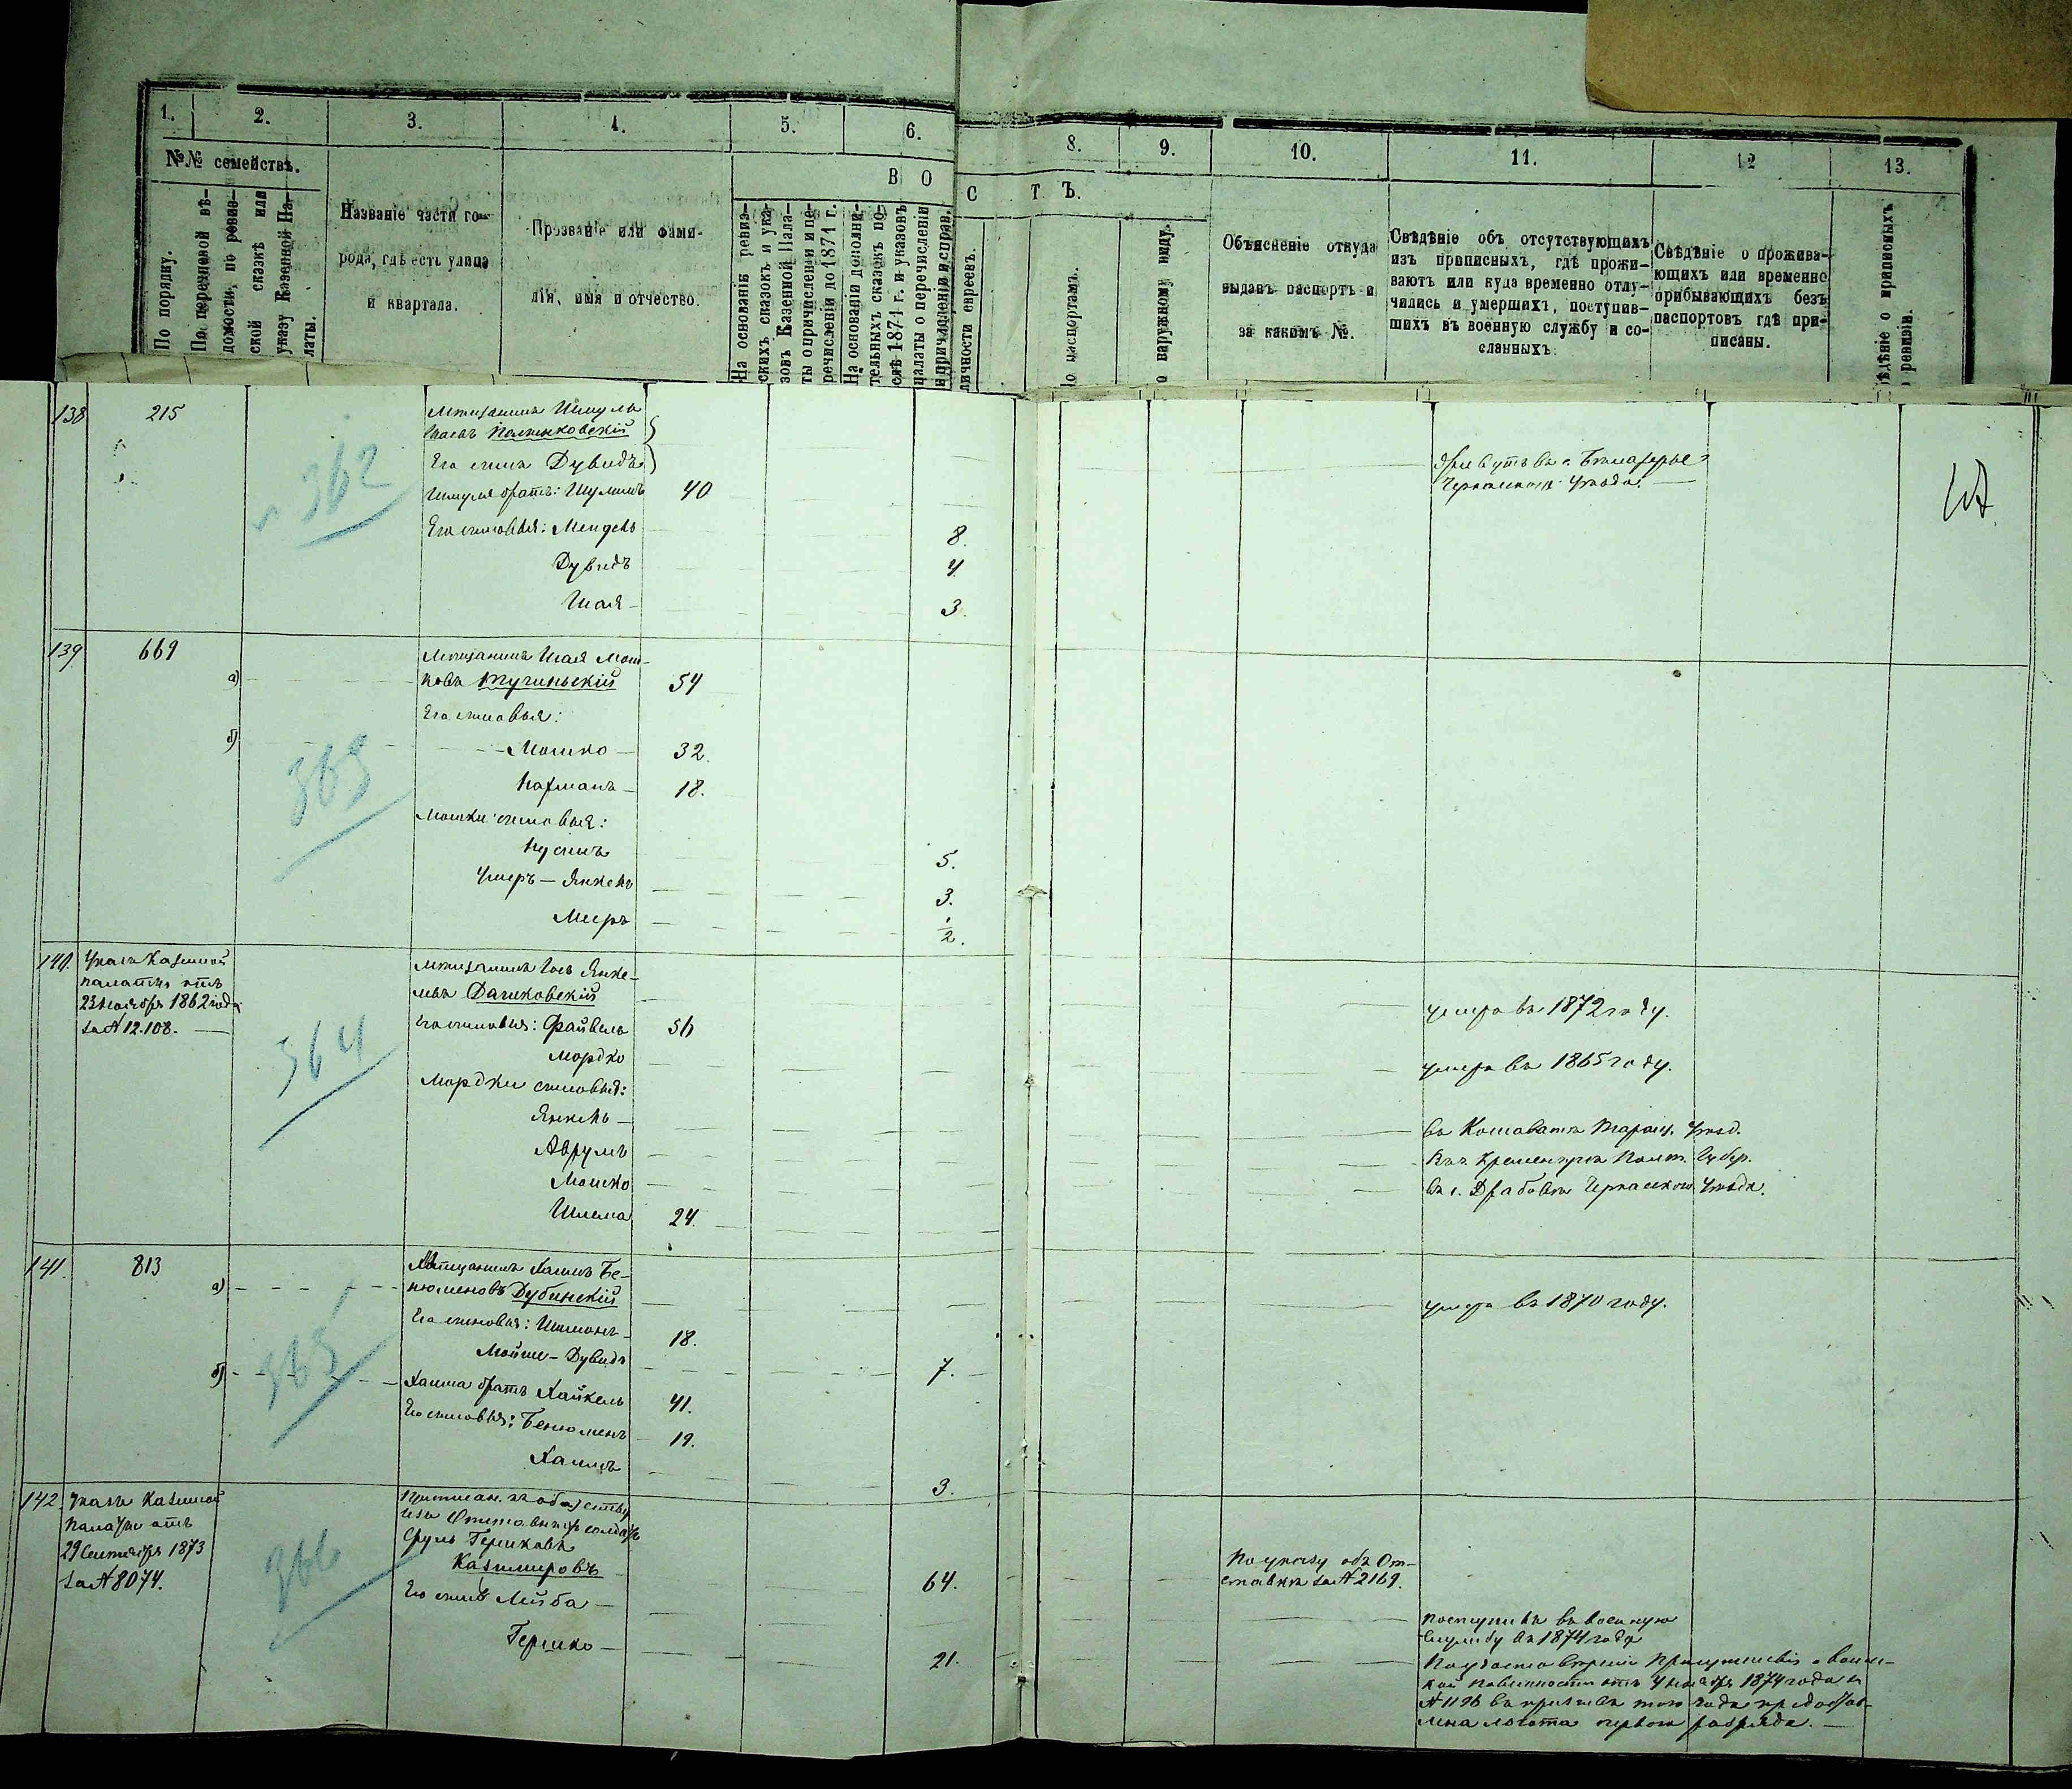 1. 2. 3. 4. 5. 6. 8. 9. 10. 11. 12 13.
№№ семействъ.
В О С Т Ъ.
По порядку.
По перечневой вѣ-
домости, по ревиз-
ской сказкѣ или
указу Казенной Па-
латы.
Названіе части го-
рода, гдѣ есть улица
и квартала.
Прозваніе или фами-
лія, имя и отчество.
На основаніи ревиз-
скихъ сказокъ и ука-
зовъ Казенной Пала-
ты о причисленіи и пе-
речисленіи до 1871 г.
На основаніи дополни-
тельныхъ сказокъ по-
слѣ 1871 г. и указовъ
палаты о перечисленіи
и причисленіи и справ.
личности евреевъ.
По паспортамъ.
о наружному виду.
Объясненіе откуда
выданъ паспортъ и
за какимъ №.
Свѣдѣніе объ отсутствующихъ
изъ приписныхъ, гдѣ прожи-
ваютъ или куда временно отлу-
чились и умершихъ, поступив-
шихъ въ военную службу и со-
сланныхъ.
Свѣдѣніе о прожива-
ющихъ или временно
прибывающихъ безъ
паспортовъ гдѣ при-
писаны.
ѣдѣніе о приписныхъ
ревизіи.
138 215
362
Мѣщанинъ Шмуль
Его сынъ Дувидъ
Шмуля братъ: Шулимъ 40
Его сыновья: Мендель 8.
Дувидъ 4.
Шая 3.
Живутъ въ
Черкасскаго Уѣзда.
139 669
363
а)
Мѣщанинъ Шая Мош-
ковъ Тучинскій 54
Его сыновья:
б) Мошко 32.
Нахманъ 18.
Мошки сыновья:
Нусинъ 5.
Умеръ — Янкель 3.
Меиръ 1/2.
140. Указъ Казенной
палаты отъ
23 Ноября 1862 года
за № 12.108.
364
Мѣщанинъ Іосъ Янке-
левъ Дашковскій
умеръ въ 1872 году.
Его сыновья: Файвель 56
Мордко
умеръ въ 1865 году.
Мордки сыновья:
Янкель
въ Кошеватѣ Таращ. Уѣзд.
Аврумъ
въ г. Кременчугѣ Полт. Губер.
Мошко
въ с. Драбовкѣ Черкасскаго Уѣзда.
Шлема 24.
141. 813
365
а)
Мѣщанинъ Хаимъ Бе-
нюменовъ Дубинскій
умеръ въ 1870 году.
Его сыновья: Шимонъ 18.
Мойше-Дувидъ 7.
б) Хаима братъ Хайкель 41.
Его сыновья: Бенюменъ 19.
Хаимъ 3.
142. Указъ Казенной
Палаты отъ
29 Сентября 1873
за № 8074.
366
Приписан. къ обществу
изъ Отставныхъ солдатъ
Сруль Гершковъ
Казимировъ 64.
По указу объ От-
ставкѣ за № 2169.
Его сынъ Лейба
поступилъ въ военную
службу въ 1874 году
Гершко 21.
По удостовѣренію Присутствія о воин-
ской повинности отъ 4 ноября 1874 года за
№ 1196 въ призывѣ того года предостав-
лена льгота перваго разряда.